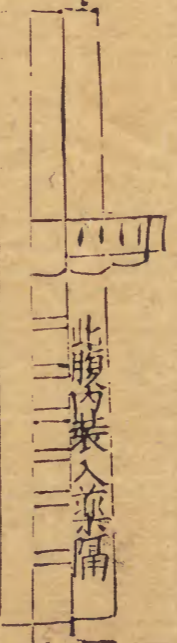 此腹內裝入藥隔